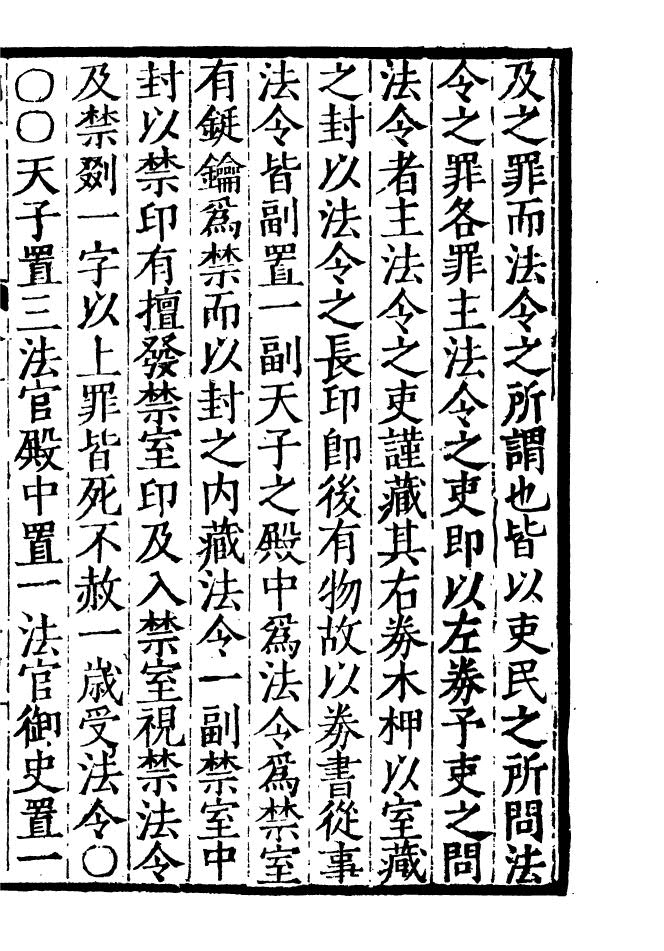 及之罪而法令之所謂也皆以吏民之所問法
令之罪各罪主法令之吏即以左券予吏之問
法令者主法令之吏謹藏其右券木柙以室藏
之封以法令之長印卽後有物故以券書從事
法令皆副置一副天子之殿中爲法令爲禁室
有鋌鑰爲禁而以封之内藏法令一副禁室中
封以禁印有擅發禁室印及入禁室視禁法令
及禁剟一字以上罪皆死不赦一歳受法令○
○○天子置三法官殿中置一法官御史置一